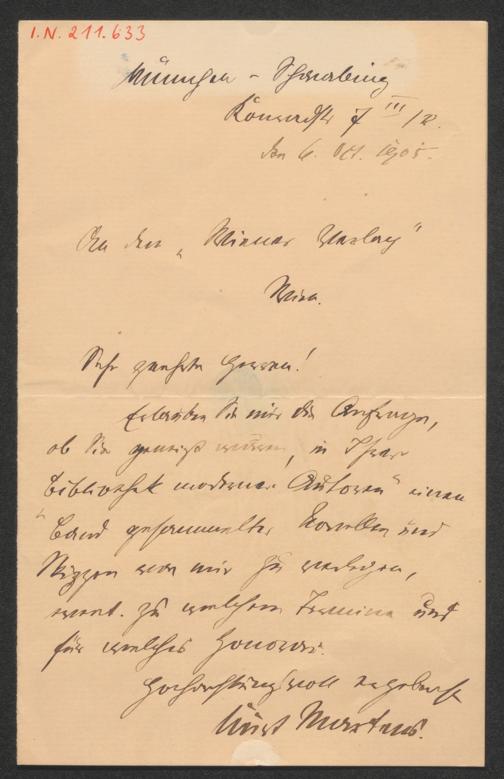 I.N. 211.633
München – Schwabing
Konradstr 7 III/r.
den 6. Oct. 1905.
An den „Wiener Verlag“
Wien.
Sehr geehrte Herren!
Erlauben Sie mir die Anfrage,
ob Sie geneigt wären, in Ihrer
„Bibliothek moderner Autoren“ einen
Band gesammelter Novellen und
Skizzen von mir zu verlegen,
event. zu welchem Termine und
für welches Honorar.
Hochachtungsvoll ergebenst
Kurt Martens.